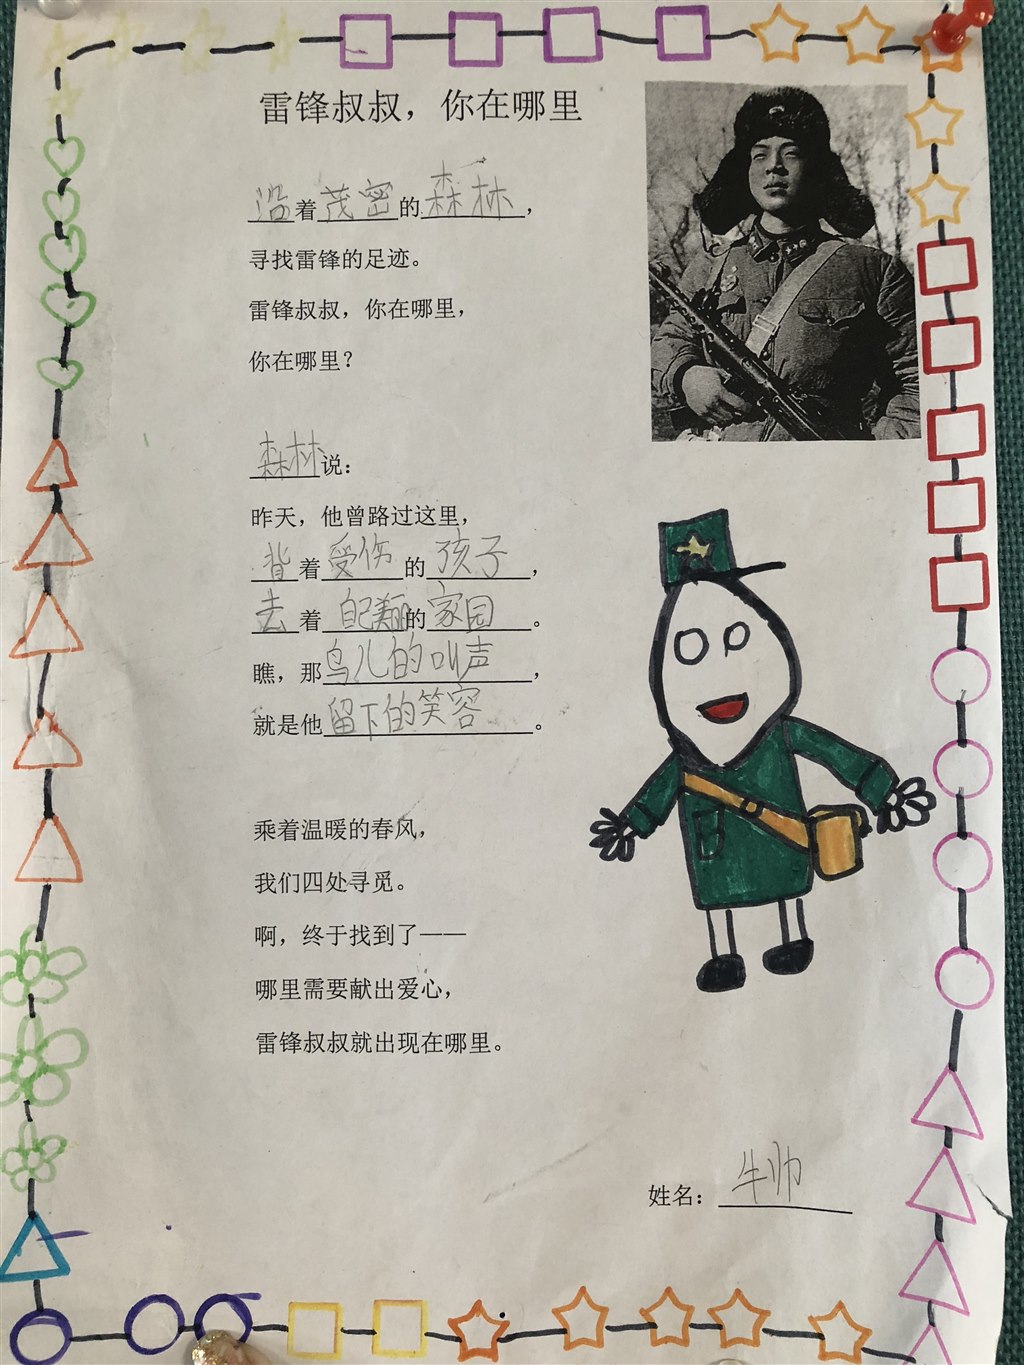 雷锋叔叔，你在哪里
沿着茂密的森林，
寻找雷锋的足迹。
雷锋叔叔，你在哪里，
你在哪里？
森林说：
昨天，他曾路过这里，
背着受伤的孩子，
去着自己美丽的家园。
瞧，那鸟儿的叫声，
就是他留下的笑容。
乘着温暖的春风，
我们四处寻觅。
啊，终于找到了——
哪里需要献出爱心，
雷锋叔叔就出现在哪里。
姓名：牛帅